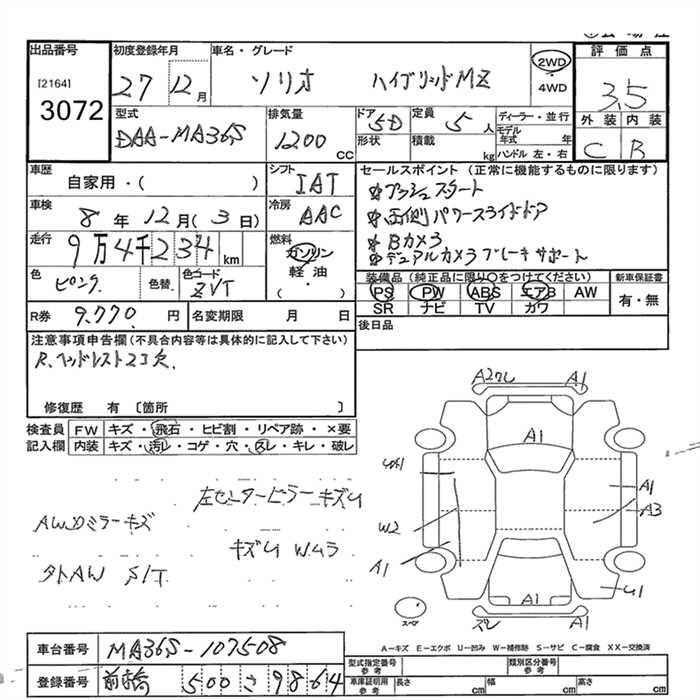 出品番号 初度登録年月 車名・グレード 2WD 評価点
[2164] 27 12月 ソリオ ハイブリッドMZ 4WD 3.5
3072
型式 排気量 ドア 定員 ディーラー・並行 外装 内装
DAA-MA36S 1200 CC 5D 5人 モデル年式 年 C B
形状 積載 kg ハンドル 左・右
車歴 シフト セールスポイント (正常に機能するものに限ります)
自家用・( ) IAT プッシュスタート
車検 冷房 両側パワースライドドア
8年 12月(3日) AAC Bカメラ
走行 燃料 デュアルカメラブレーキサポート
9万4千234km ガソリン
軽油・
( )
色 色替 色コード 装備品 (純正品に限り○をつけてください) 新車保証書
ピンク ZVT PS PW ABS エアB AW 有・無
SR ナビ TV カワ
R券 9.770.円 名変期限 月 日 後日品
注意事項申告欄(不具合内容等は具体的に記入して下さい)
R.ヘッドレスト2コ欠.
修復歴 有 〔箇所 〕
検査員 FW キズ・飛石・ヒビ割・リペア跡・×要
記入欄 内装 キズ・汚レ・コゲ・穴・スレ・キレ・破レ
A1
A1
A1
A3
W2
A1
U1
A1
左センターピラーキズU
AWDミラーキズ
キズU Wムラ
タトAW SIT
スペア
ズレ
A-キズ E-エクボ U-凹み W-補修跡 S-サビ C-腐食 XX-交換済
車台番号 MA36S-107508
登録番号 前橋 500 さ 9864
型式指定番号 参考 類別区分番号 参考
車庫証明用 参考 長さ cm 幅 cm 高さ cm